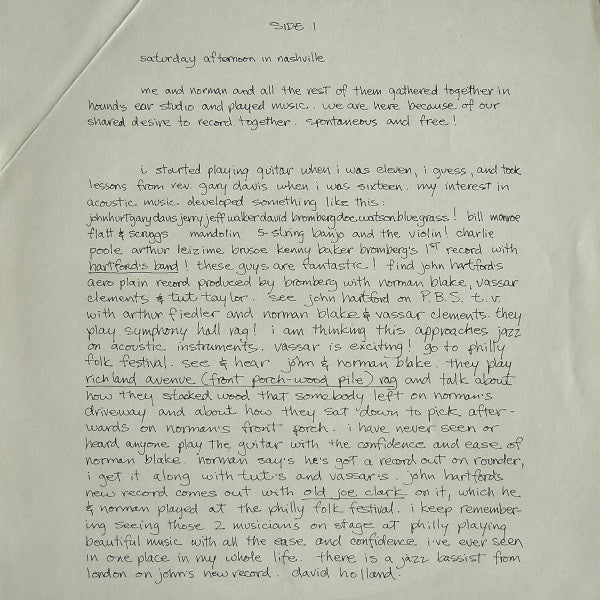 SIDE 1
saturday afternoon in nashville
me and norman and all the rest of them gathered together in
hound's ear studio and played music. we are here because of our
shared desire to record together. spontaneous and free!
i started playing guitar when i was eleven, i guess, and took
lessons from rev. gary davis when i was sixteen. my interest in
acoustic music developed something like this:
johnhurtgarydavisjerryjeffwalkerdavidbrombergdocwatsonbluegrass! bill monroe
flatt & scruggs mandolin 5-string banjo and the violin! charlie
poole arthur leizime brusoe kenny baker bromberg's 1st record with
hartford's band! these guys are fantastic! find john hartford's
aero plain record produced by bromberg with norman blake, vassar
clements & tut taylor. see john hartford on P.B.S. t.v.
with arthur fiedler and norman blake & vassar clements. they
play symphony hall rag! i am thinking this approaches jazz
on acoustic instruments. vassar is exciting! go to philly
folk festival. see & hear john & norman blake. they play
richland avenue (front porch-wood pile) rag and talk about
how they stacked wood that somebody left on norman's
driveway and about how they sat down to pick after-
wards on norman's front porch. i have never seen or
heard anyone play the guitar with the confidence and ease of
norman blake. norman say's he's got a record out on rounder,
i get it along with tut's and vassar's. john hartfords
new record comes out with old joe clark on it, which he
& norman played at the philly folk festival. i keep remember-
ing seeing those 2 musicians on stage at philly playing
beautiful music with all the ease and confidence i've ever seen
in one place in my whole life. there is a jazz bassist from
london on john's new record. david holland.